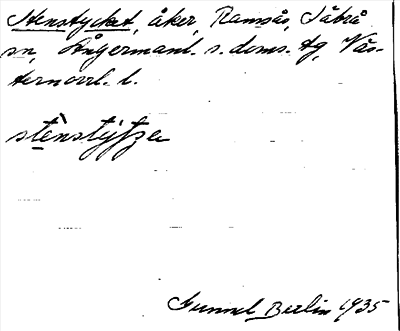 Stenstycket, åker, Ramsås, Säbrå
sn, Ångermanl. s. doms. tg, Väs-
ternorrl. l.
stènstýtza
Gunnel Berlin 1935